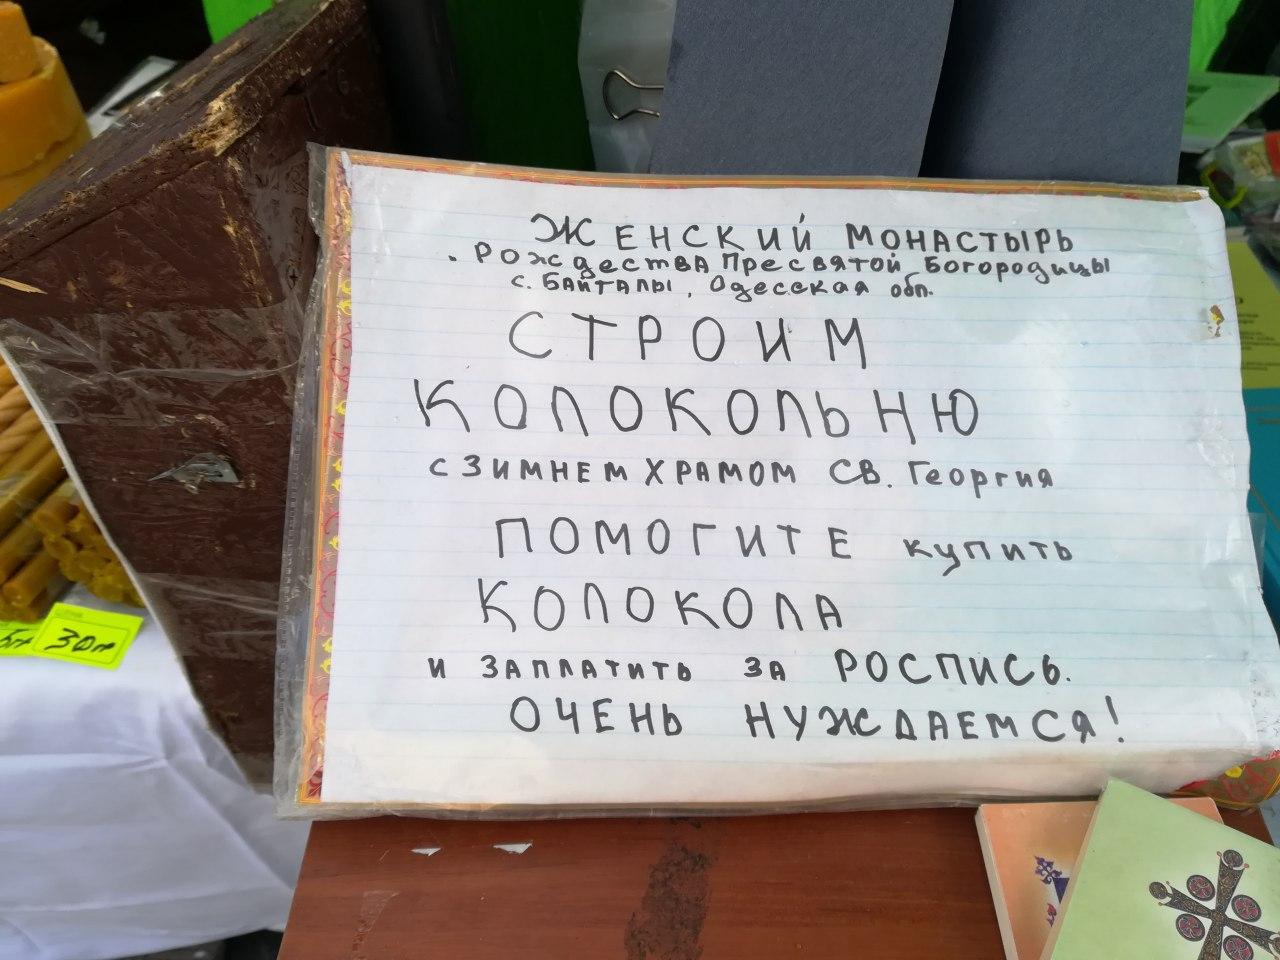 ЖЕНСКИЙ МОНАСТЫРЬ
РОЖДЕСТВА ПРЕСВЯТОЙ БОГОРОДИЦЫ
С. БАЙТАЛЫ, Одесская обл.
СТРОИМ
КОЛОКОЛЬНЮ
С ЗИМНЕМ ХРАМОМ СВ. Георгия
ПОМОГИТЕ купить
КОЛОКОЛА
И ЗАПЛАТИТЬ ЗА РОСПИСЬ.
ОЧЕНЬ НУЖДАЕМСЯ!